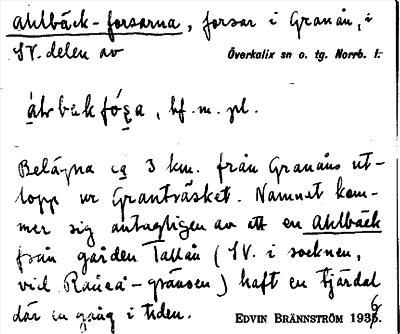 Ahlbäck-forsarna, forsar i Granån, i
SV. delen av Överkalix sn o. tg. Norrb. l.
bf. m. pl.
Belägna ca 3 km. från Granåns ut-
lopp ur Granträsket. Namnet kom-
mer sig antagligen av att en Ahlbäck
från gården Tallån (SV. i socknen,
vid Råneå-gränsen) haft en tjärdal
där en gång i tiden. EDVIN BRÄNNSTRÖM 1936.